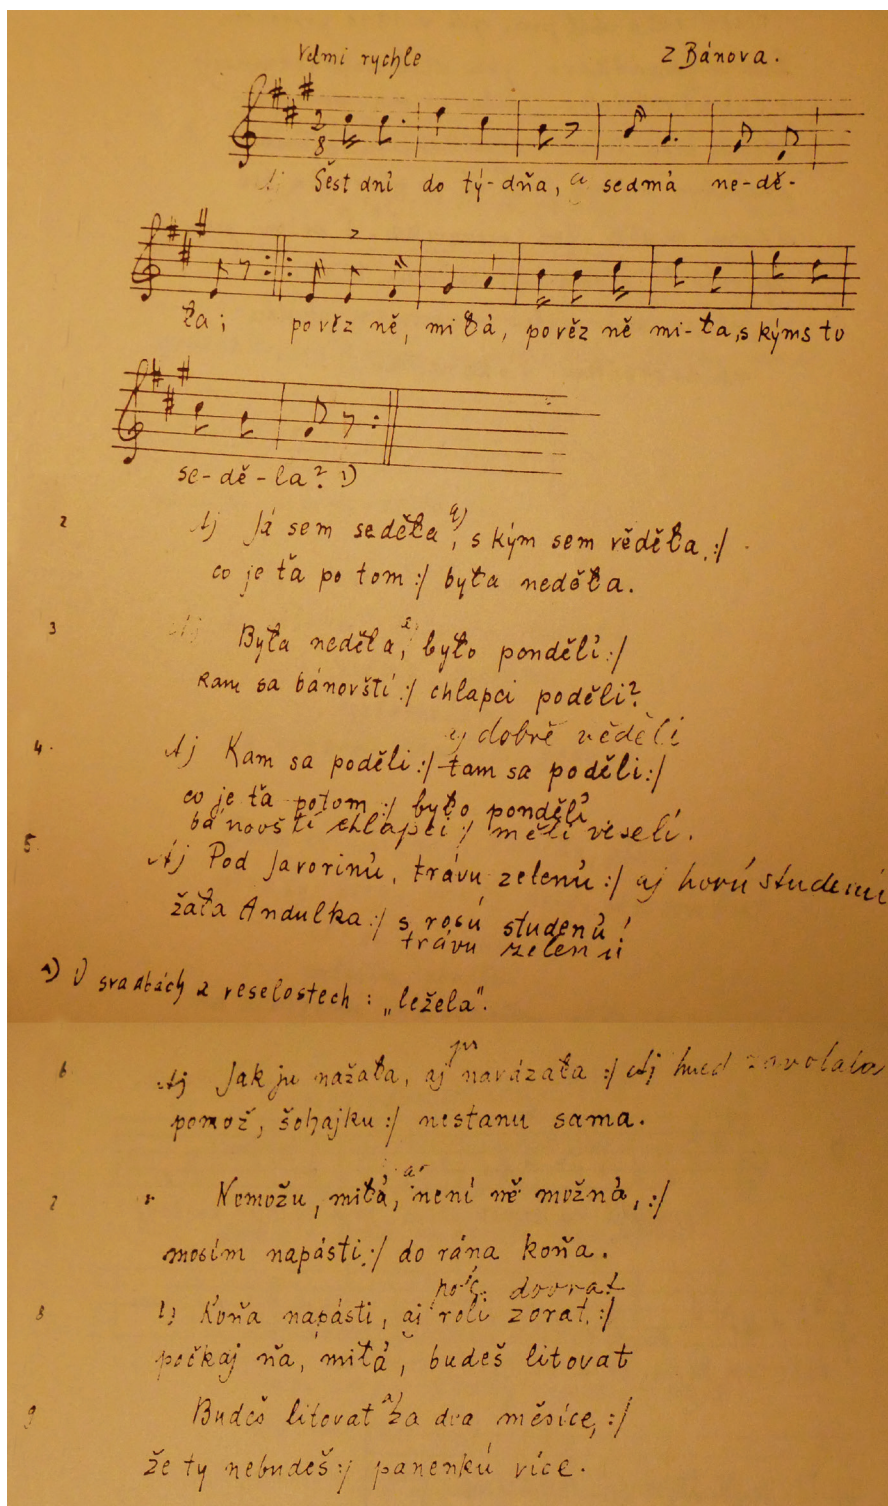 Velmi rychle Z Bánova.
2
8
Aj Šést dní do tý-dňa, a sedmá ne-dě-
ła; pověz ně, miłá, pověz ně mi-ła, s kýms tu
se-dě-la? 1)
2 Aj Já sem seděła, aj s kým sem věděła, :/
co je ťa po tom :/ była neděła.
3 Aj Była neděla, było pondělí :/
kam sa bánovští :/ chlapci poděli?
aj dobře věděli
4. Aj Kam sa poděli :/ tam sa poděli :/
co je ťa potom :/ było pondělí
bánovští chlapci :/ měli veselí.
5. Aj Pod Javorinú, trávu zelenú :/ aj horú studenú
žała Andulka :/ s rosú studenú!
trávu zelenú
1) V svadbách a veselostech: „ležela".
6 Aj Jak ju nažała, aj navázała :/ Aj hned zavolala
pomož, šohajku :/ nestanu sama.
7 Nemožu, miłá, aj není ně možná, :/
mosím napásti :/ do rána koňa.
dovrat
8 Aj Koňa napásti, aj rolí zorat, :/
počkaj ňa, miłá, budeš litovat
9 Budeš litovat aj za dva měsíce, :/
že ty nebudeš :/ panenkú více.